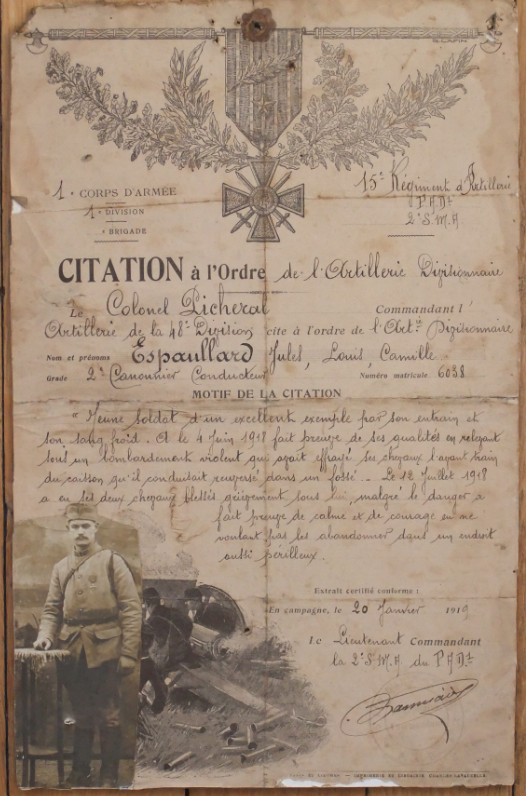 1
1e CORPS D'ARMÉE
1e DIVISION
e BRIGADE
15e Régiment d'Artillerie
PADt
2e S.M.A
CITATION à l'Ordre de l'Artillerie Divisionnaire
Le Colonel Picheral Commandant l'
Artillerie de la 48e Division cite à l'ordre de l'Artie Divisionnaire
Nom et prénoms Espaullard Jules, Louis, Camille
Grade 2e Canonnier Conducteur Numéro matricule 6038
MOTIF DE LA CITATION
" Jeune soldat d'un excellent exemple par son entrain et
son sang froid. A le 4 Juin 1918 fait preuve de ses qualités en relevant
sous un bombardement violent qui avait effrayé ses chevaux l'avant train
du caisson qu'il conduisait renversé dans un fossé. _ Le 12 Juillet 1918
a eu ses deux chevaux blessés grièvement sous lui, malgré le danger a
fait preuve de calme et de courage en ne
voulant pas les abandonner dans un endroit
aussi périlleux.
Extrait certifié conforme :
En campagne, le 20 Janvier 1919
Le Lieutenant Commandant
la 2e S.M.A du PADt
IMPRIMERIE ET LIBRAIRIE CHARLES-LAVAUZELLE